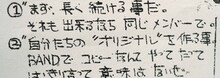 ①"まず、長く続ける事だ。
それも出来るなら同じメンバーで。
②"自分たちの"オリジナル"を作る事。
BANDで コピーなんてやってたって
はっきり言って意味はないっ。